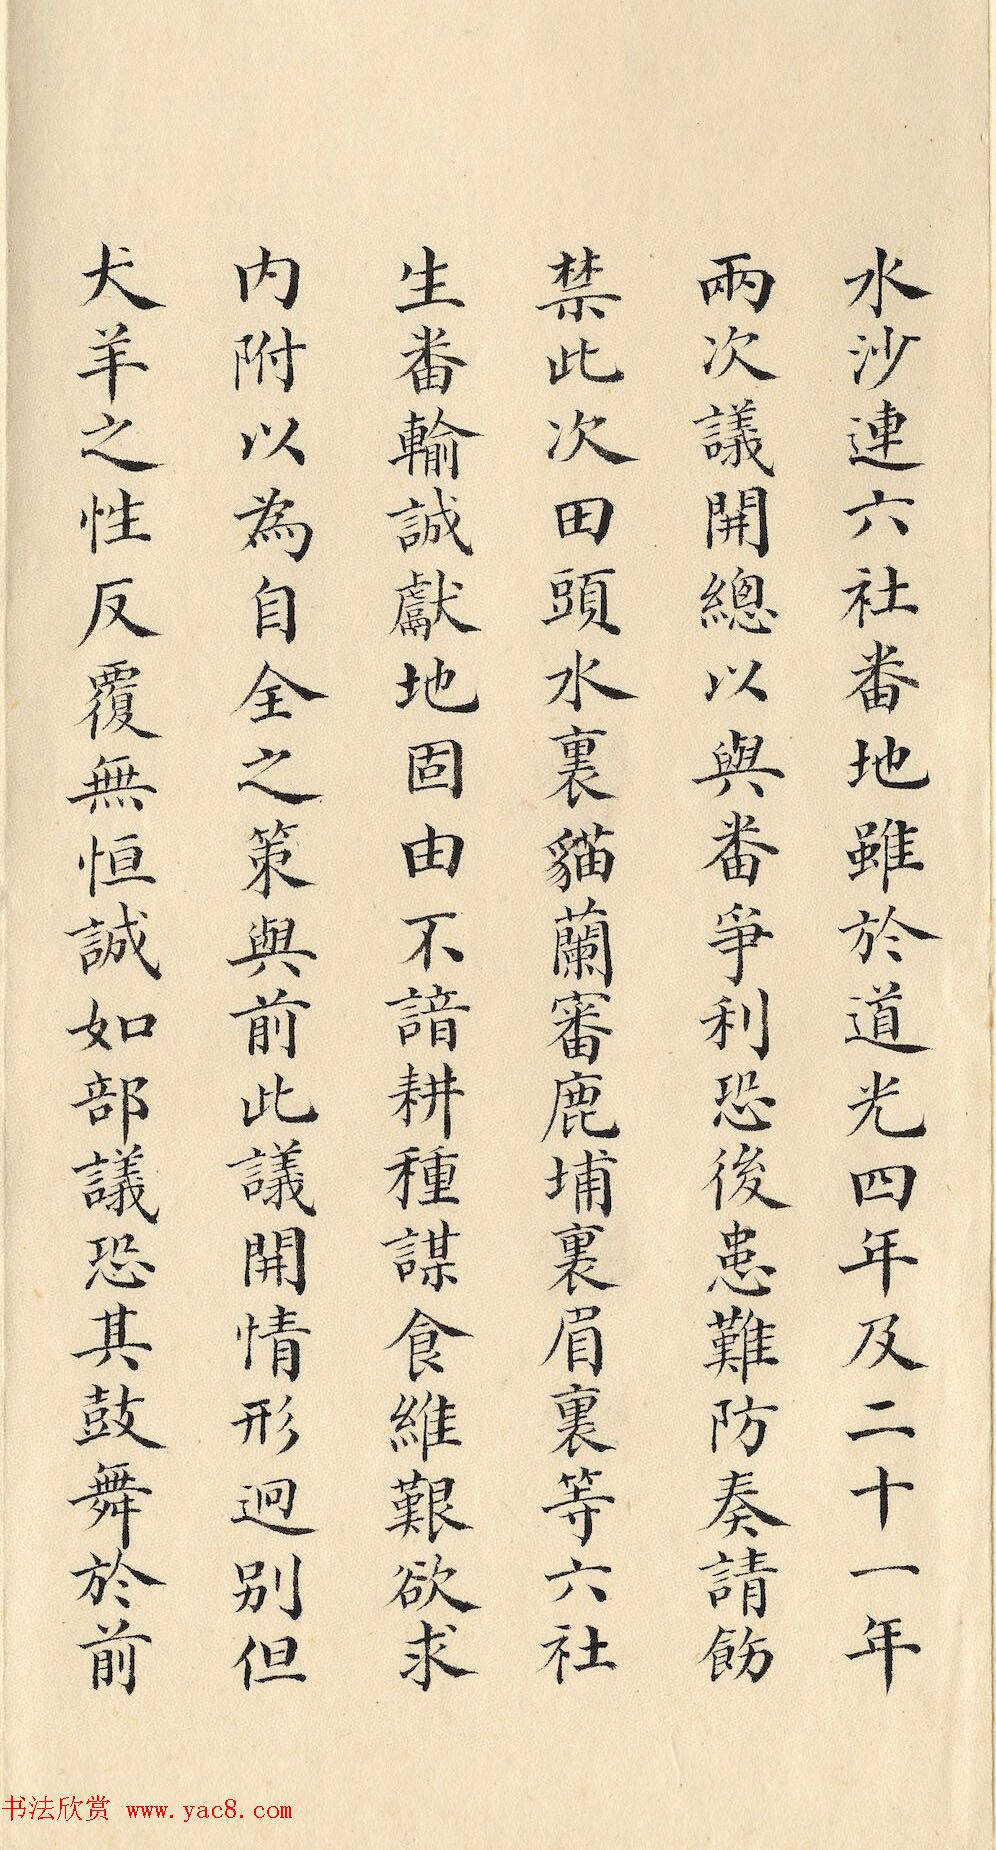 水沙連六社番地雖於道光四年及二十一年
兩次議開總以與番爭利恐後患難防奏請飭
禁此次田頭水裏貓蘭審鹿埔裏眉裏等六社
生番輸誠獻地固由不諳耕種謀食維艱欲求
内附以為自全之策與前此議開情形迥别但
犬羊之性反覆無恒誠如部議恐其鼓舞於前
书法欣赏 www.yac8.com